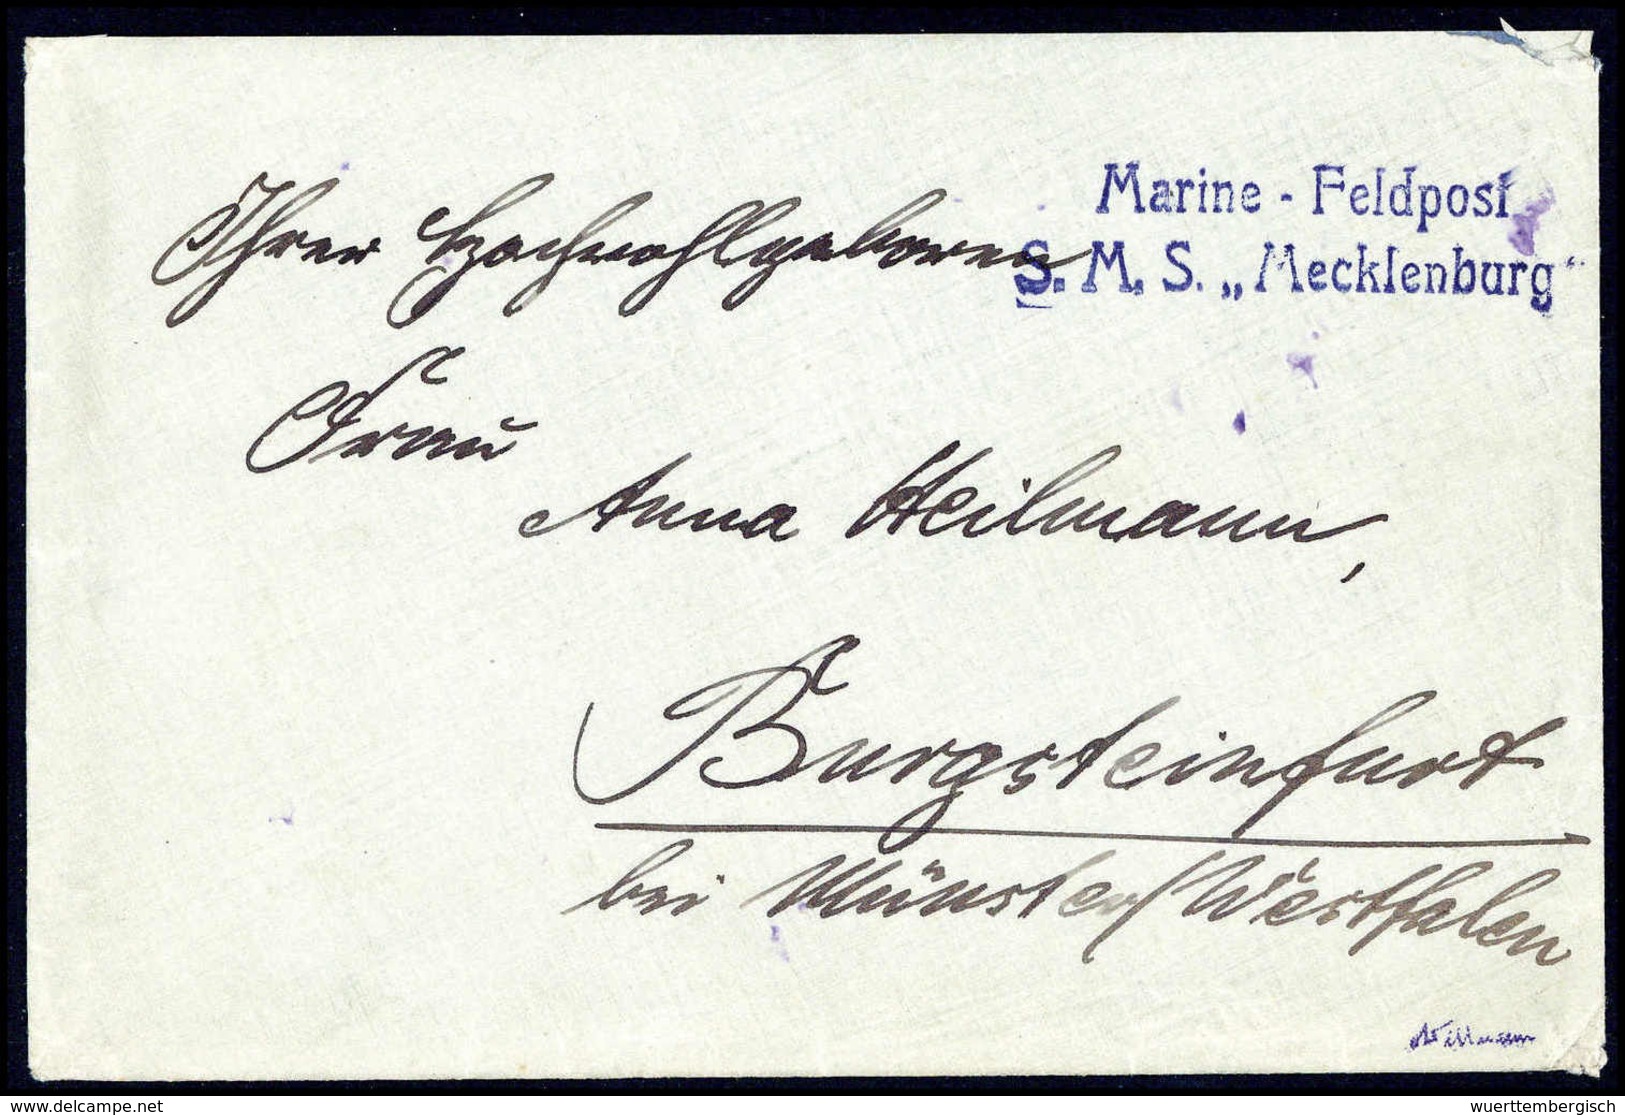 Marine - Feldpost
S. M. S. „Mecklenburg“
Ihrer Hochwohlgeboren
Frau
Anna Heilmann,
Burgsteinfurt
bei Münster/Westfalen
delcampe.net
wuerttembergisch